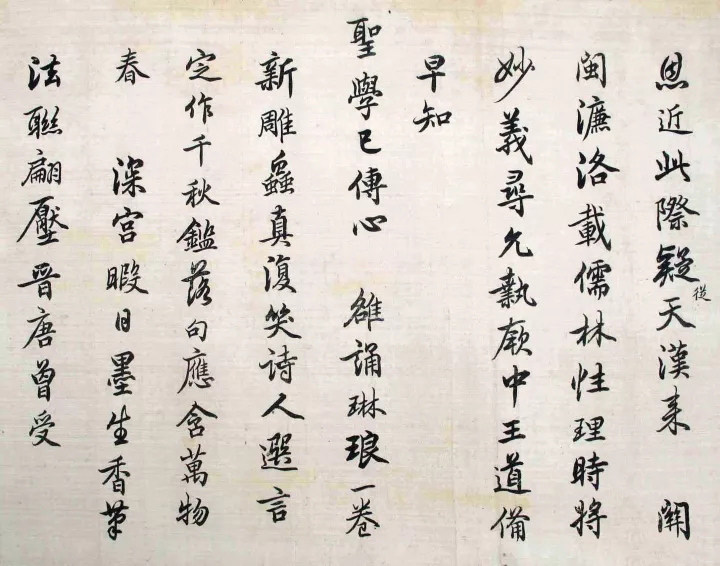 恩近此際疑從天漢來 關
閩濂洛載儒林性理時將
妙義尋允執厥中王道備
早知
聖學已傳心 雒誦琳琅一卷
新雕蟲真復笑詩人選言
定作千秋鑑落句應含萬物
春 深宮暇日墨生香筆
法聯翩壓晉唐曾受